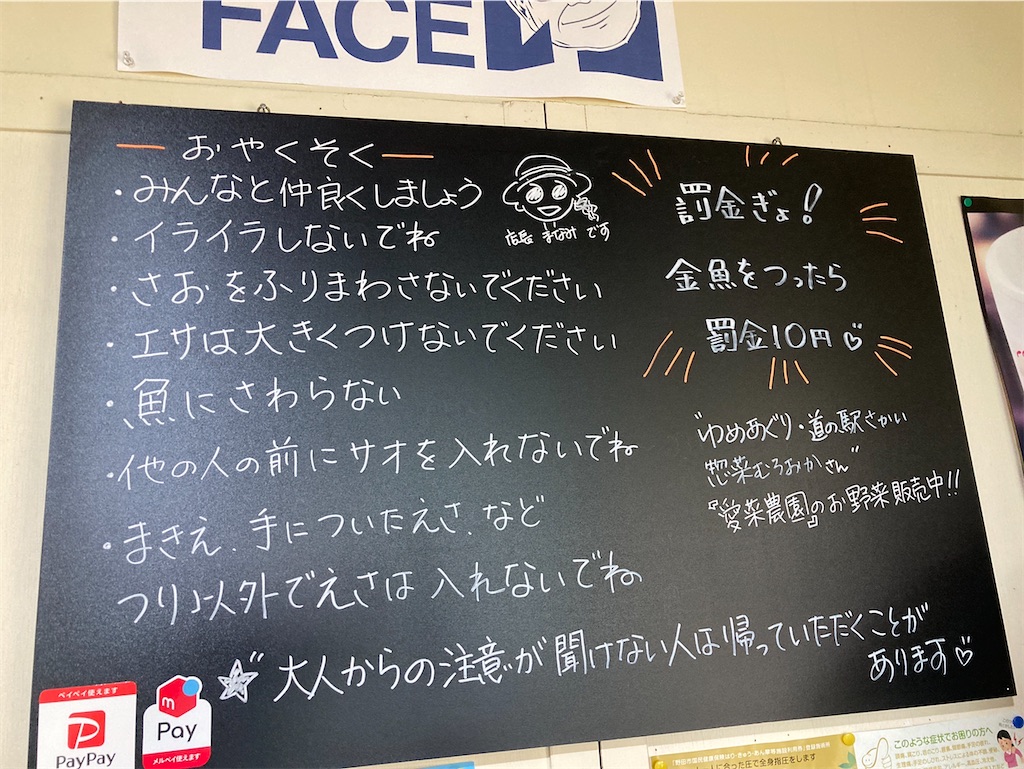 FACE
おやくそく
・みんなと仲良くしましょう
・イライラしないでね
・さおをふりまわさないでください
・エサは大きくつけないでください
・魚にさわらない
・他の人の前にサオを入れないでね
・まきえ、手についたえさ、など
つり以外でえさは入れないでね
☆大人からの注意が聞けない人は帰っていただくことが
あります♡
店長 まなみ です
罰金ぎょ!
金魚をつったら
罰金10円♡
"ゆめあぐり・道の駅さかい
惣菜むろおかさん"
『愛菜農園』のお野菜販売中!!
ペイペイ使えます
PayPay
m
Pay
メルペイ使えます
に合った圧で全身指圧をします
このような症状でお困りの方へ